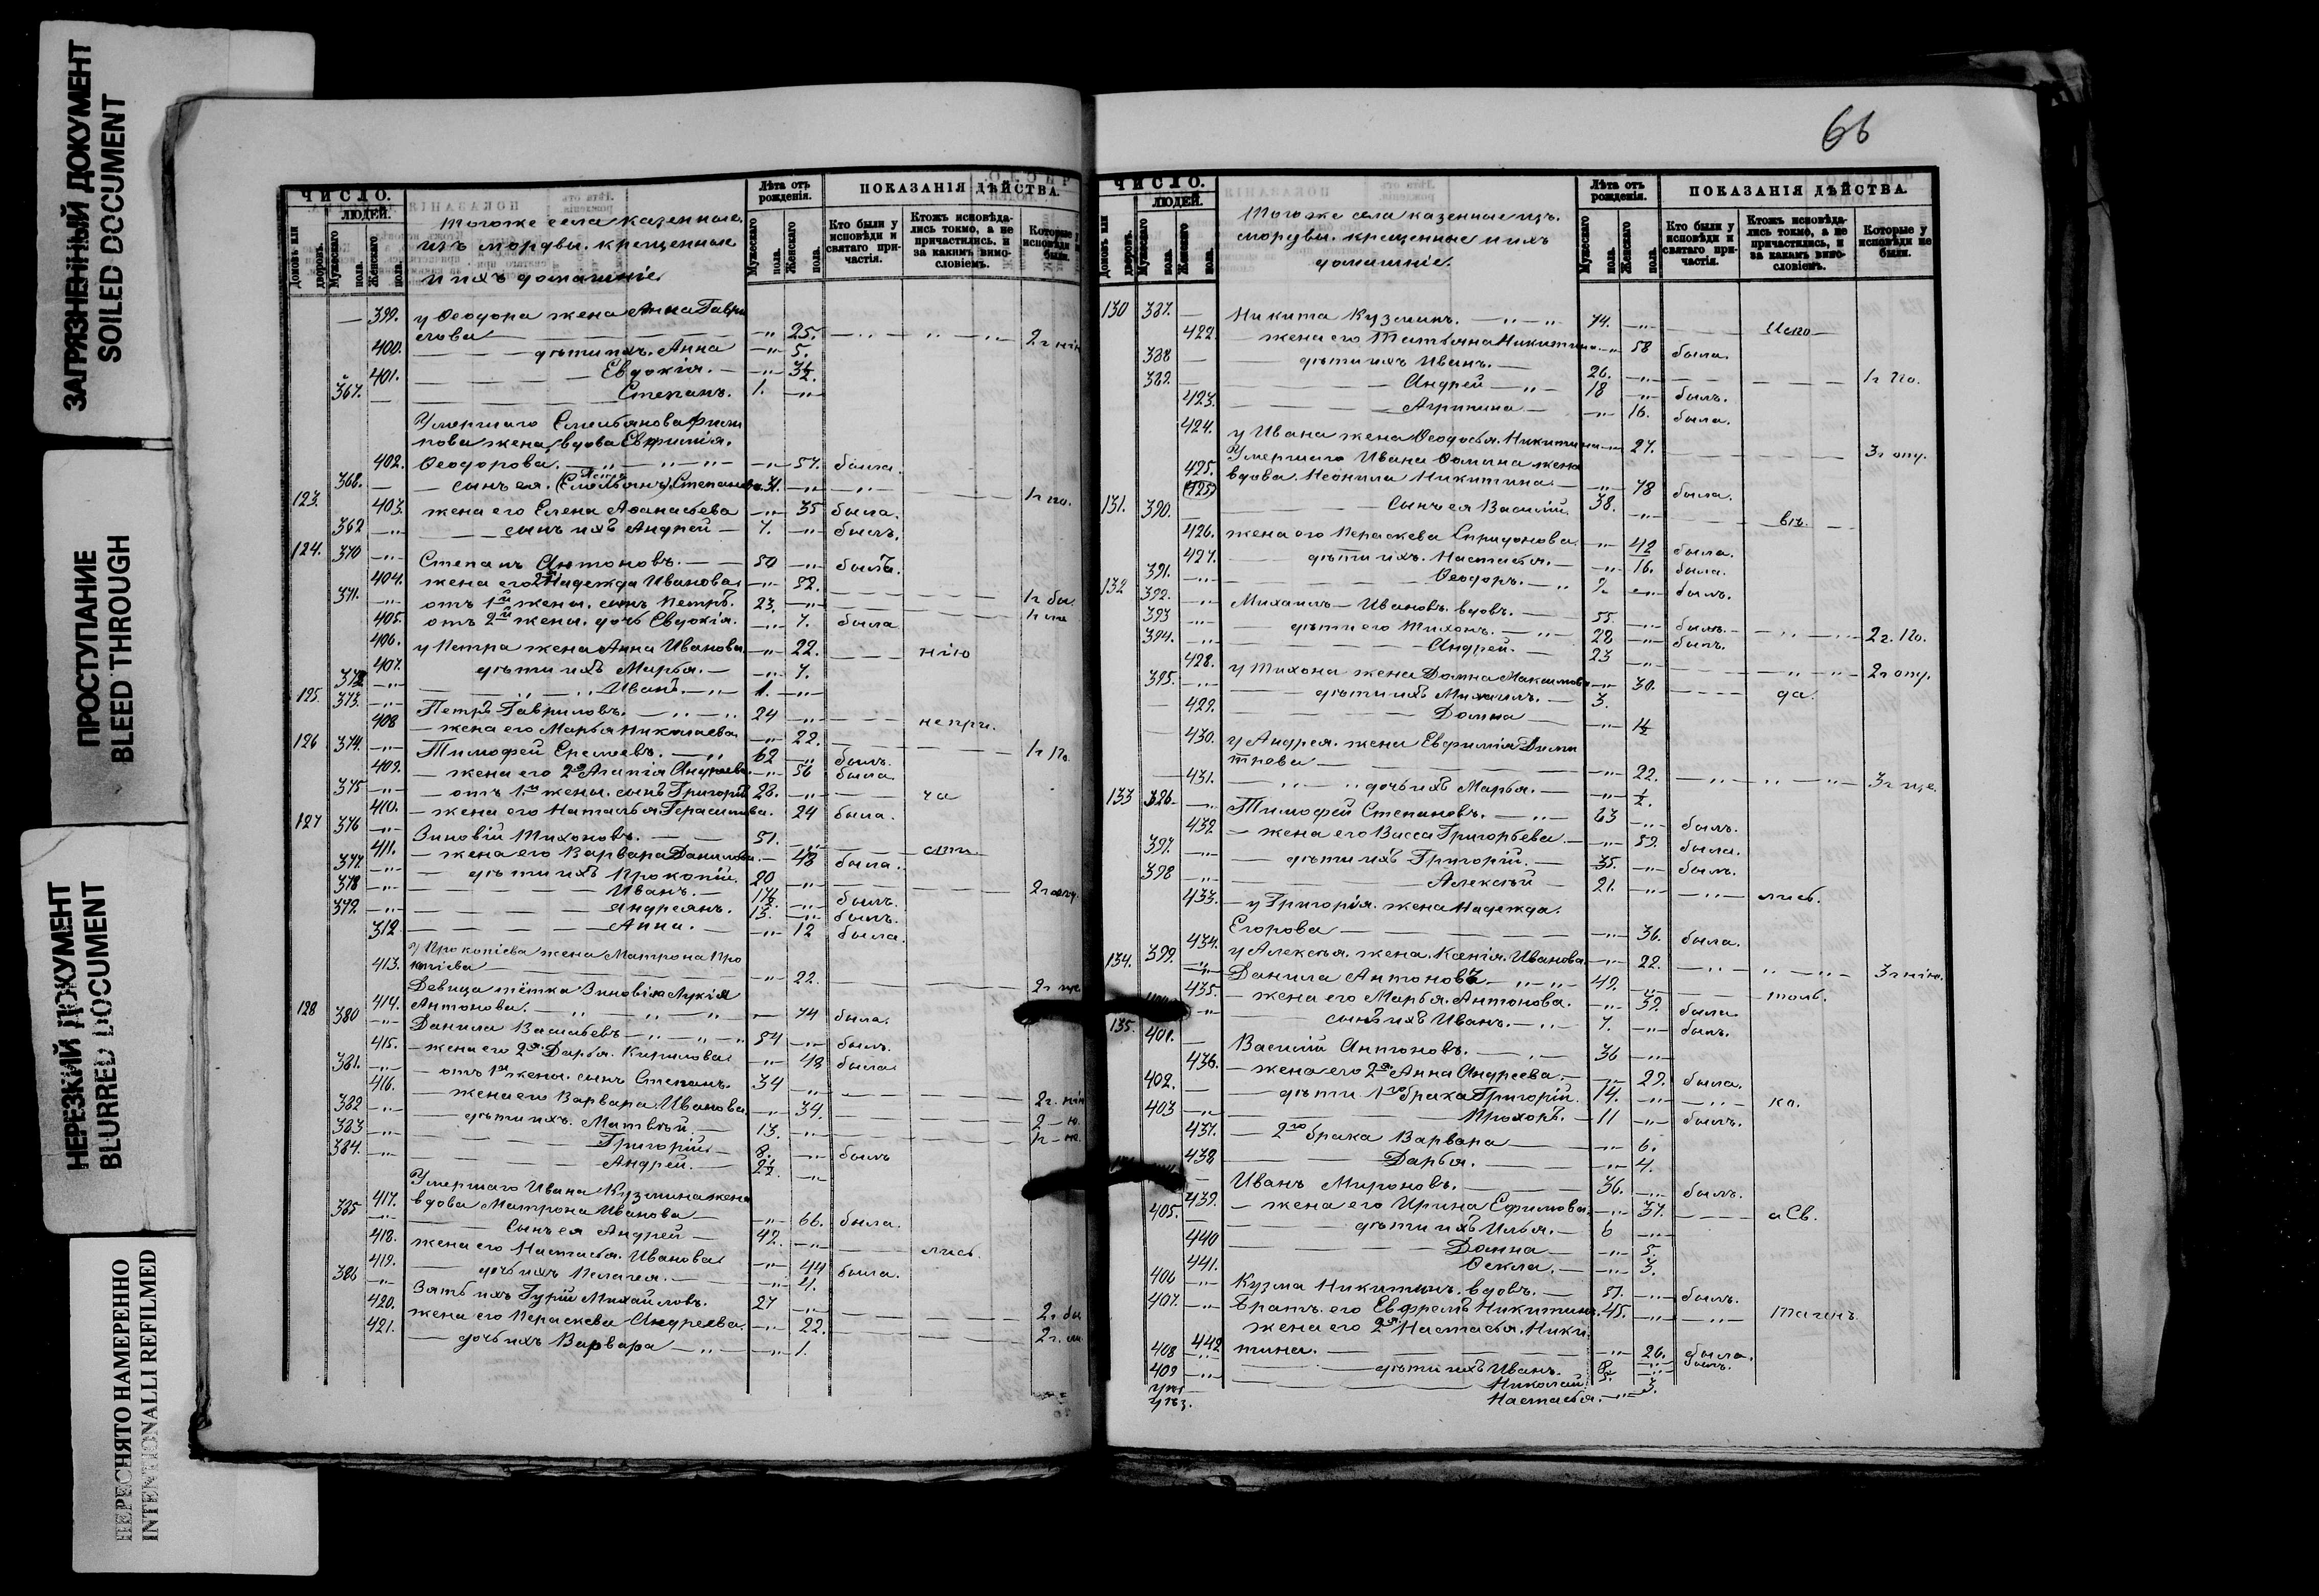 ЗАГРЯЗНЕННЫЙ ДОКУМЕНТ
SOILED DOCUMENT
ПРОСТУПАНИЕ
BLEED THROUGH
НЕРЕЗКИЙ ДОКУМЕНТ
BLURRED DOCUMENT
ПЕРЕСНЯТО НАМЕРЕННО
INTENTIONALLI REFILMED
ЧИСЛО.
ЛЮДЕЙ.
Домовъ или дворовъ.
Мужескаго пола.
Женскаго пола.
Тогоже села казенные
изъ мордвы крещенные
и ихъ домашніе
Лѣта отъ рожденія.
Мужескаго пола.
Женскаго пола.
ПОКАЗАНІЯ ДѢЙСТВА.
Кто были у исповѣди и святаго причастія.
Ктожъ исповѣдались токмо, а не причастились, и за какимъ винословіемъ.
Которые у исповѣди не были.
399. у Ѳеодора жена Анна Гаври
лова 25. 2 г
400. дѣти ихъ. Анна 5.
401. Евдокія. 3½.
367. Степанъ. 1.
Умершаго Емельянова Фили
пова жена вдова Евфимія.
402. Ѳеодорова. 57. была.
368. сынъ ея. (Емельянъ) Степановъ 31. 1 г по.
123. 403. жена его Елена Аѳанасьева 35 была.
369 сынъ ихъ Андрей 7. былъ.
124. 370 Степанъ Антоновъ. 50 былъ.
404. жена его 2я Надежда Иванова 52.
371. отъ 1й жены. сынъ Петръ. 23. 1 г бы.
405. отъ 2й жены. дочь Евдокія. 7. была
406. у Петра жена Анна Иванова 22. нію
407. дѣти ихъ Марья. 7.
372 Иванъ. 1.
125. 373. Петръ Гавриловъ. 24 не при.
408 жена его Марья Николаева 22.
126 374. Тимофей Еремеевъ. 62 былъ. 1 г По.
409. жена его 2я Агапія Андреева 56 была.
375 отъ 1й жены. сынъ Григорій 28. ча
410. жена его Наталья Герасимова. 24 была.
127 376 Зиновій Тихоновъ. 51. сти.
411. жена его Варвара Данилова. 48 была.
377. дѣти ихъ Прокопій. 20
378 Иванъ. 17½. былъ.
379. Андреянъ. 13. былъ.
312. Анна. 12 была.
у Прокопіева жена Матрона Про
413. копіева 22.
Девица тётка Зиновія Лукія
414. Антонова. 74 была.
128 380 Данила Васильевъ 54 былъ.
415. жена его 2я. Дарья. Кирилова 48 была
381. отъ 1й жены. сынъ Степанъ. 34
416. жена его Варвара Иванова. 34. 2 г.
382 дѣти ихъ. Матвѣй 13.
383 Григорій. 8. былъ
384. Андрей. 2½.
Умершаго Ивана Кузмина жена
417. вдова Матрона Иванова 66. была.
385 Сынъ ея Андрей 42. лись.
418. жена его Настасья. Иванова 44 была.
419. дочь ихъ Пелагея. 4.
386 Зять ихъ Гурій Михайловъ. 27 2 г. бы
420. жена его Параскева Андреева. 22. 2 г.
421. дочь ихъ Варвара 1.
66
ЧИСЛО.
ЛЮДЕЙ.
Домовъ или дворовъ.
Мужескаго пола.
Женскаго пола.
Тогоже села казенные изъ.
мордвы. крещенные и ихъ
домашніе.
Лѣта отъ рожденія.
Мужескаго пола.
Женскаго пола.
ПОКАЗАНІЯ ДѢЙСТВА.
Кто были у исповѣди и святаго причастія.
Ктожъ исповѣдались токмо, а не причастились, и за какимъ винословіемъ.
Которые у исповѣди не были.
130 387. Никита Кузминъ. 74. Испо
422. жена его Татьяна Никитина 58 была.
388 дѣти ихъ Иванъ. 26. 1 г По.
389. Андрей 18 былъ.
423. Агрипина 16. была.
424. у Ивана жена Ѳеодосья. Никитина 27. 3 г опу.
Умершаго Ивана Ѳомина жена
425. вдова. Неонила Никитина. 78 была.
(425)
131. 390. Сынъ ея Василій. 38. вѣ.
426. жена его Параскева Спиридонова. 42 была.
427. дѣти ихъ. Настасья. 16. была.
391. Ѳеодоръ. 9. былъ.
132 392. Михаилъ Ивановъ. вдовъ. 55. былъ. 2 г. По.
393 дѣти его Тихонъ. 28 былъ.
394. Андрей. 23 2 г опу.
428. у Тихона жена Домна Максимова 30. да.
395. дѣти ихъ Михаилъ. 3.
429. Домна 1½
430. у Андрея. жена Евфимія Дими
трева 22. 3 г
431. дочь ихъ Марья. ½.
133 396. Тимофей Степановъ. 63 былъ.
432 жена его Васса Григорьева 59. была.
397. дѣти ихъ Григорій. 35. былъ.
398 Алексѣй 21. лись.
433. у Григорія. жена Надежда.
Егорова 36. была.
434. у Алексѣя. жена. Ксенія. Иванова 22. 3 г
134. 399. Данила Антоновъ. 49. толь.
435. жена его Марья. Антонова. 39. была
сынъ ихъ Иванъ. 7. былъ.
135. 401. Василій Антоновъ. 36
436. жена его 2я Анна Андреева. 29. была.
402. дѣти 1го брака Григорій. 14. ко.
403 Прохоръ. 11 былъ.
437. 2го брака Варвара 6.
438 Дарья. 4.
Иванъ Мироновъ. 36. былъ.
439. жена его Ирина Ефимова. 37. и Св.
405. дѣти ихъ Илья. 6
440 Домна 5.
441. Ѳекла. 3.
406 Кузма Никитинъ. вдовъ. 51. былъ.
407. Братъ его Евфремъ Никитинъ. 45. Таинъ
жена его 2я Настасья. Ники
442 тина. 26. была.
408 дѣти ихъ Иванъ. 8. былъ.
409 Николай. 5.
Настасья. 3.